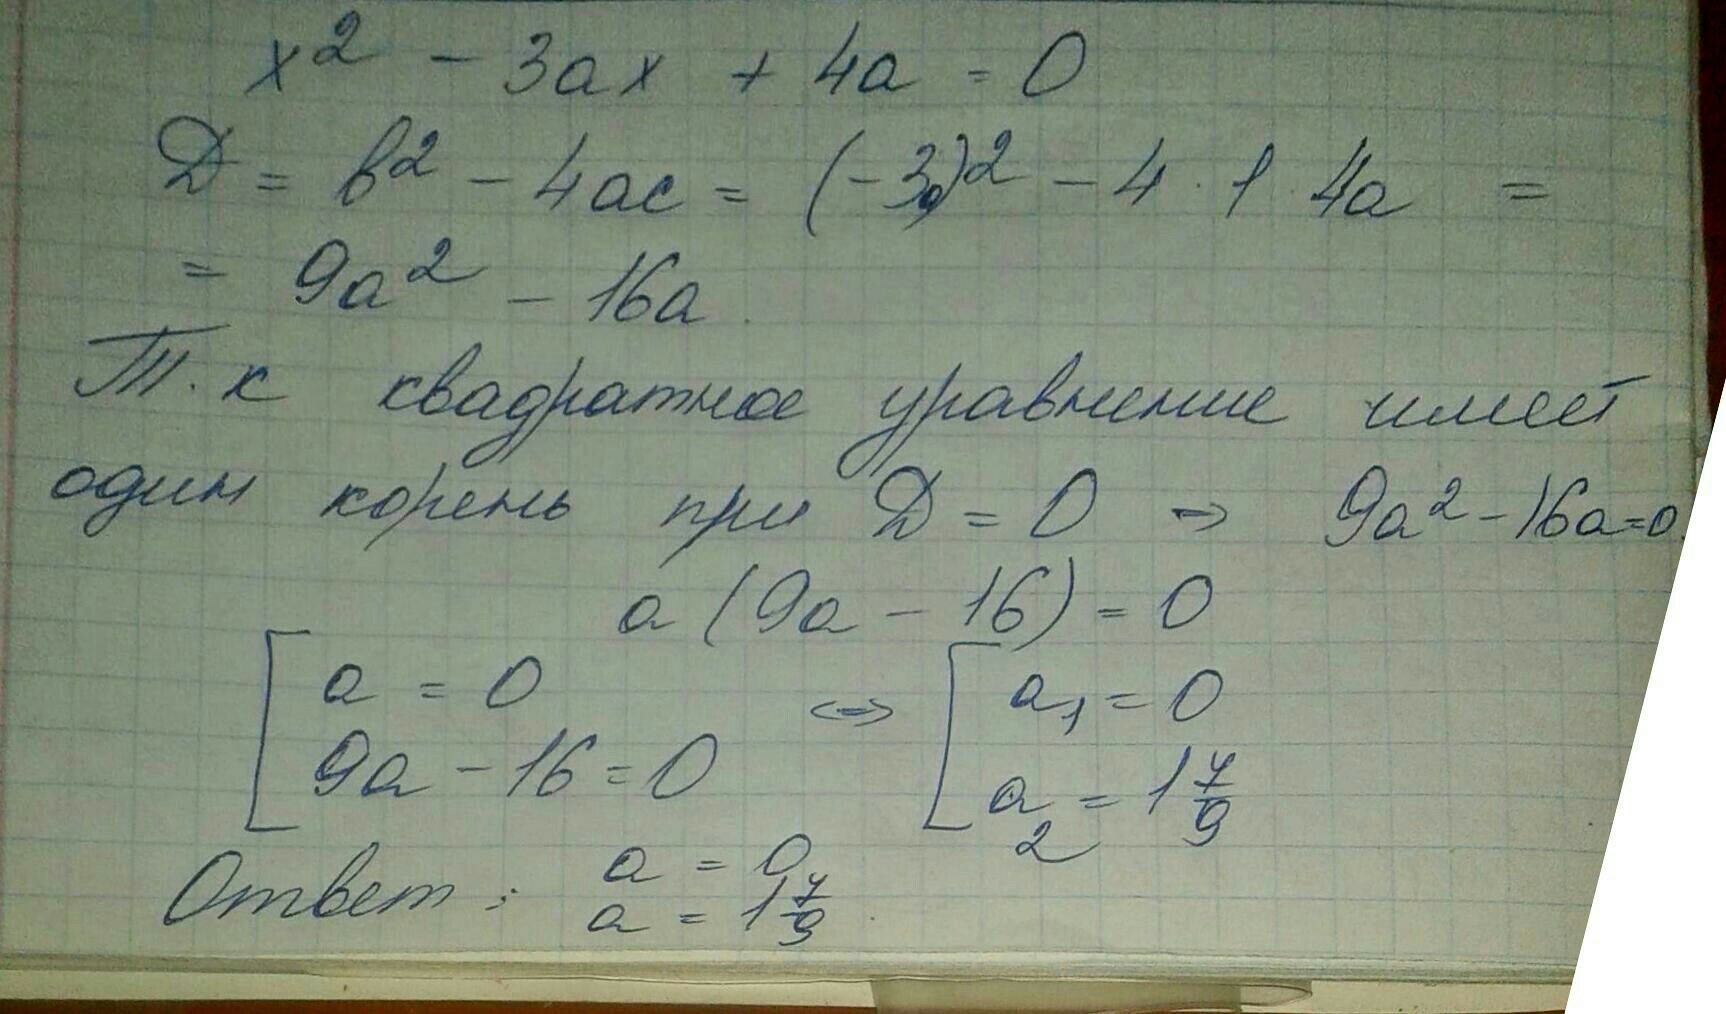 x² - 3ax + 4a = 0
D = b² - 4ac = (-3a)² - 4 · 1 · 4a =
= 9a² - 16a
Т.к квадратное уравнение имеет
один корень при D = 0 ⇒ 9a² - 16a = 0
a (9a - 16) = 0
[ a = 0 ⇔ [ a₁ = 0
9a - 16 = 0 a₂ = 1 7/9
Ответ: a = 0
a = 1 7/9